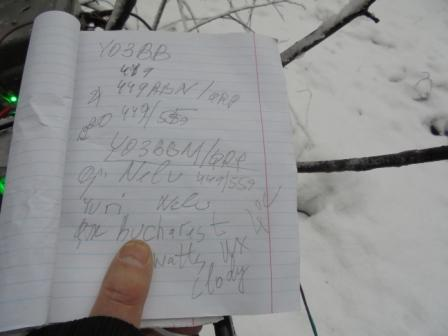 YO3BB
449
449RBN/QRP
449/559
YO3BBM/QRP
op: Nelu 449/559
Yuri Nelu
bucharest
watts wx
clody